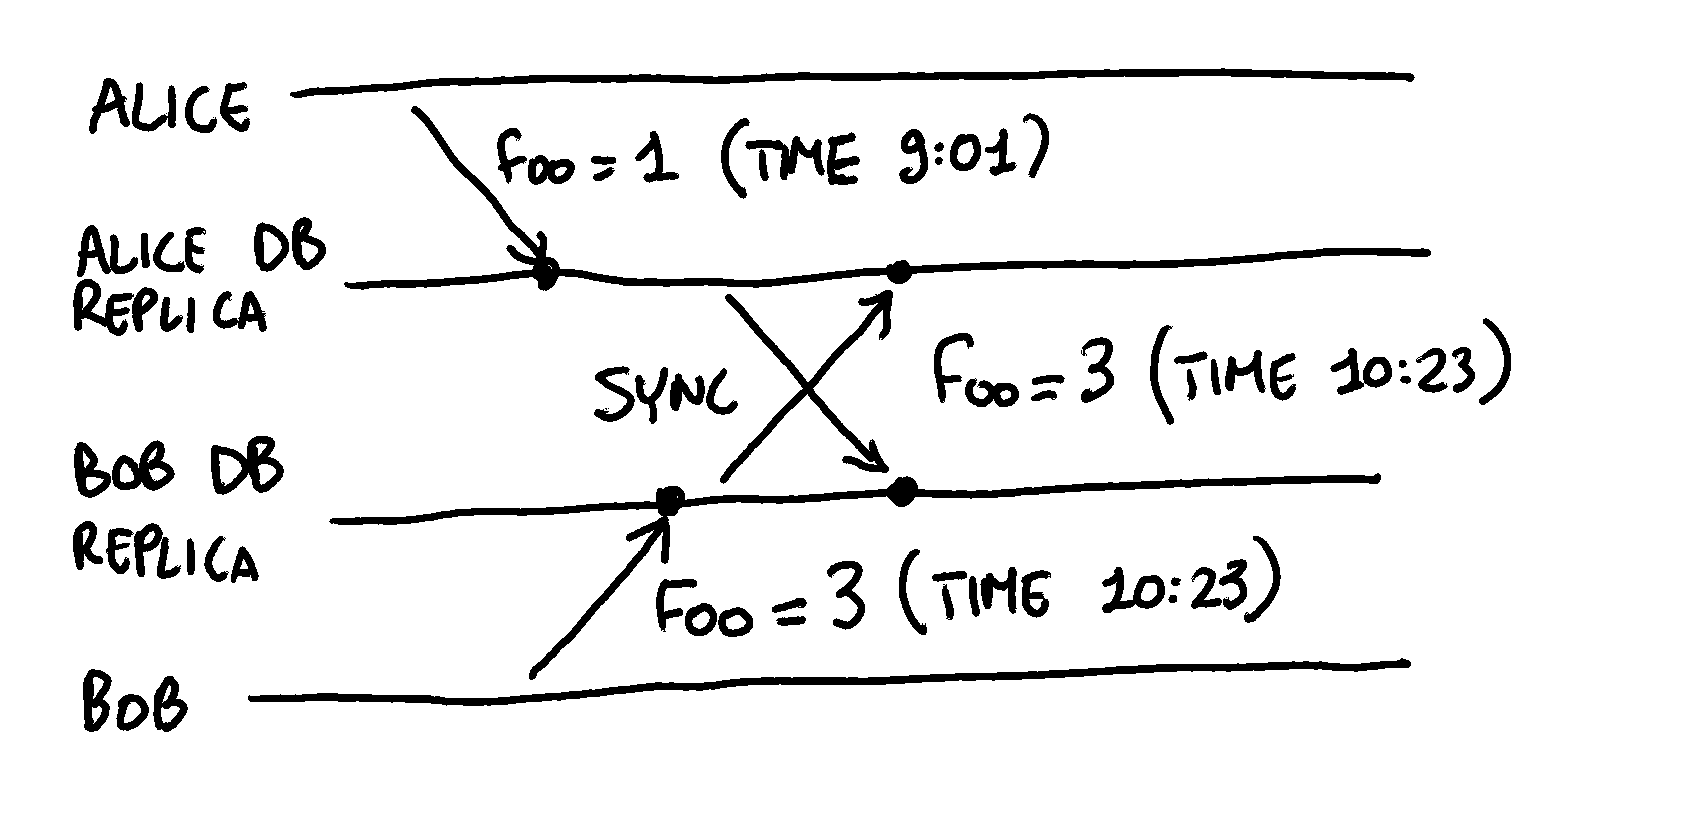 ALICE
Foo = 1 (TIME 9:01)
ALICE DB
REPLICA
SYNC
Foo = 3 (TIME 10:23)
BOB DB
REPLICA
Foo = 3 (TIME 10:23)
BOB